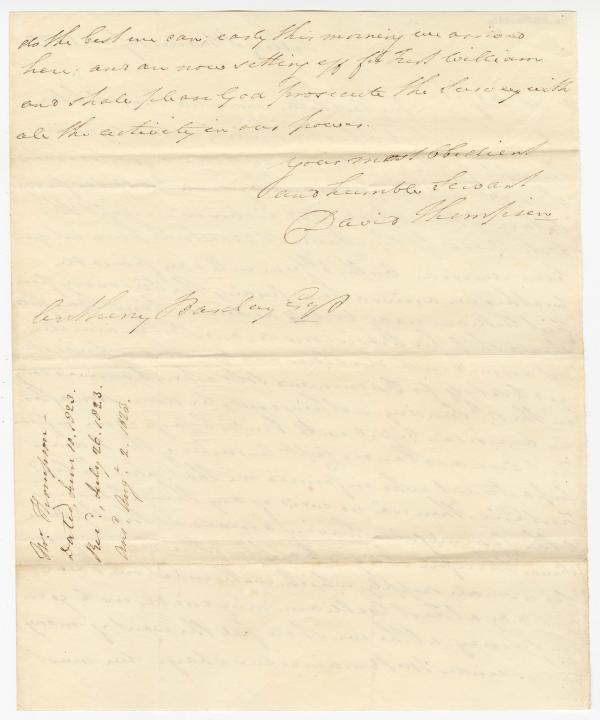 do the best we can; early this morning we arrived
here; and are now setting off for Fort William
and shall please God prosecute the Survey with
all the activity in our power.
Your most Obedient
and humble Servant
David Thompson
Anthony Barclay Esqr
Mr. Thompson –
Dated, June 10. 1823.
Recd., July 26. 1823.
Ansd. Augt. 2. 1823.